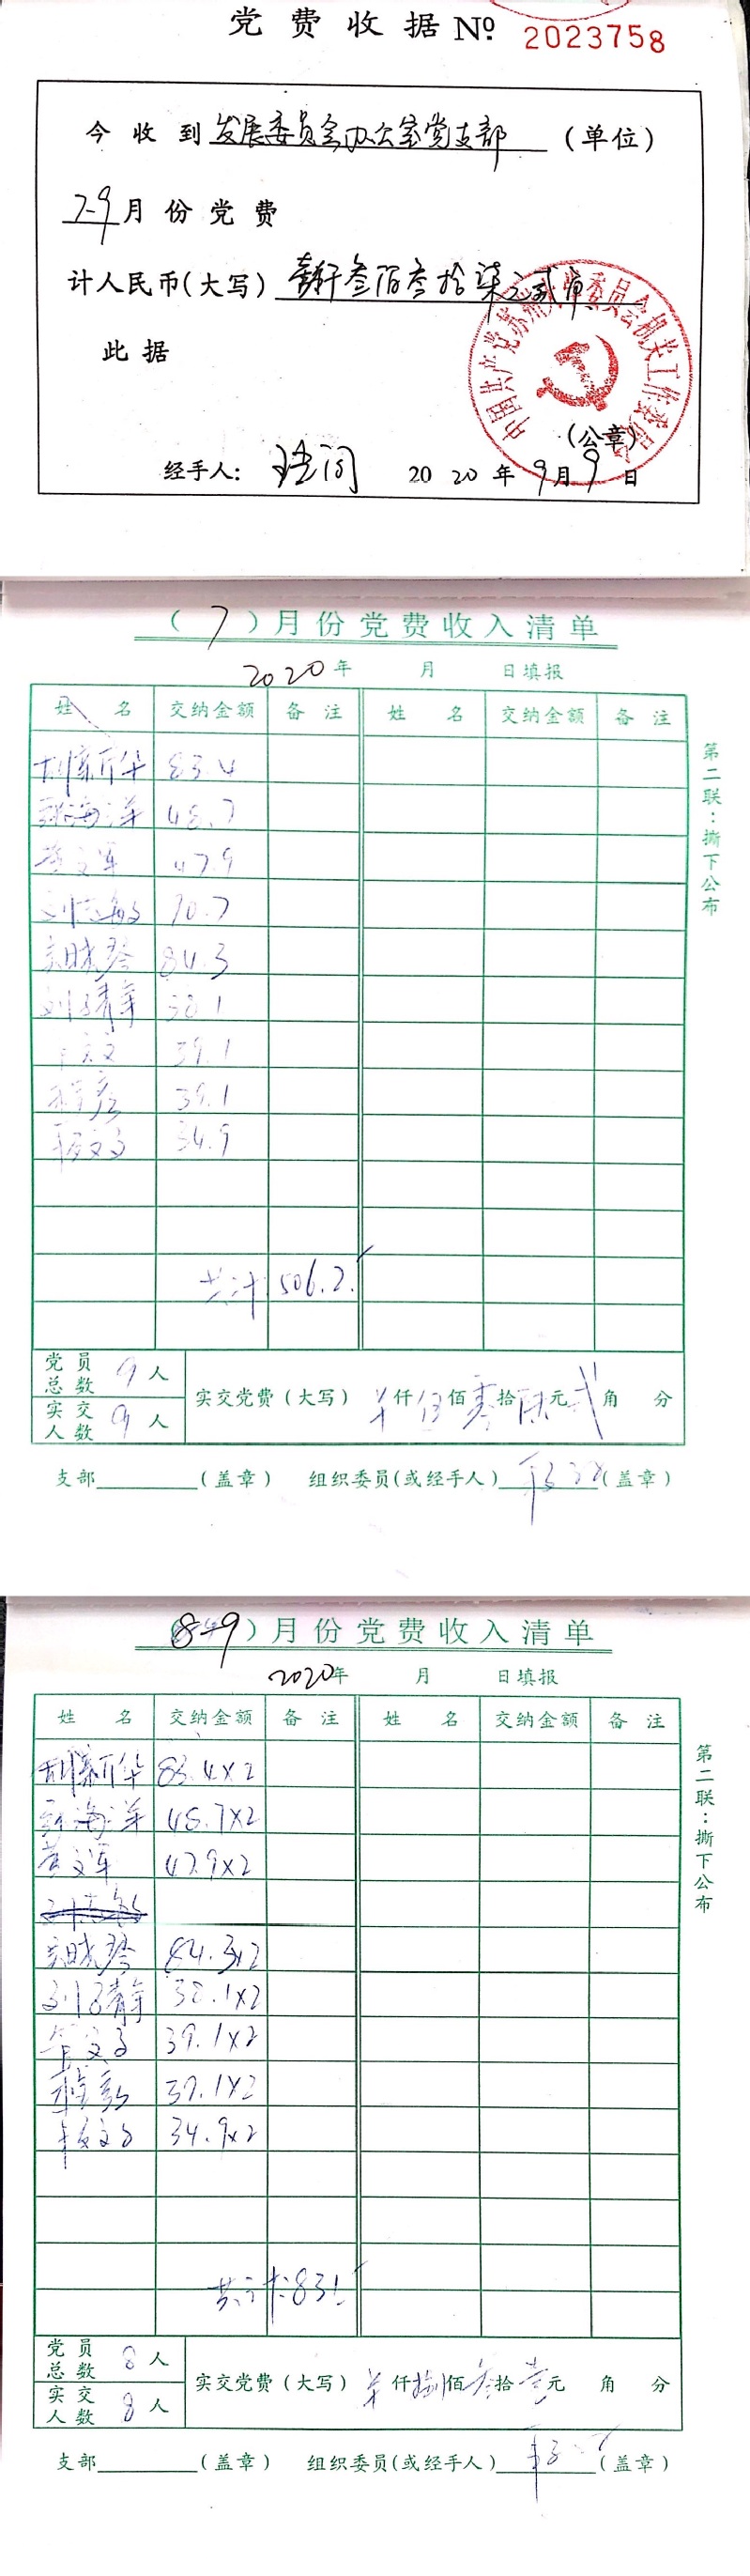 党费收据 Nº 2023758
今收到发展委员会办公室党支部(单位)
7-9月份党费
计人民币(大写)壹仟叁佰叁拾柒元贰角
此据
中国共产党苏州大学委员会机关工作委员会
(公章)
经手人: 2020年9月9日
(7)月份党费收入清单
2020年 月 日填报
姓名 交纳金额 备注 姓名 交纳金额 备注
胡新华 83.4
48.7
黄文军 47.9
刘志敏 90.7
吴晓琴 84.3
刘子静 38.1
39.1
程彦 39.1
34.9
共计 506.2
党员总数 9人
实交人数 9人
实交党费(大写) 仟伍佰零拾陆元贰角 分
支部 (盖章) 组织委员(或经手人) (盖章)
第二联:撕下公布
(8-9)月份党费收入清单
2020年 月 日填报
姓名 交纳金额 备注 姓名 交纳金额 备注
胡新华 83.4×2
48.7×2
黄文军 47.9×2
吴晓琴 84.3×2
刘子静 38.1×2
39.1×2
39.1×2
34.9×2
共计:831
党员总数 8人
实交人数 8人
实交党费(大写) 仟捌佰叁拾壹元 角 分
支部 (盖章) 组织委员(或经手人) (盖章)
第二联:撕下公布